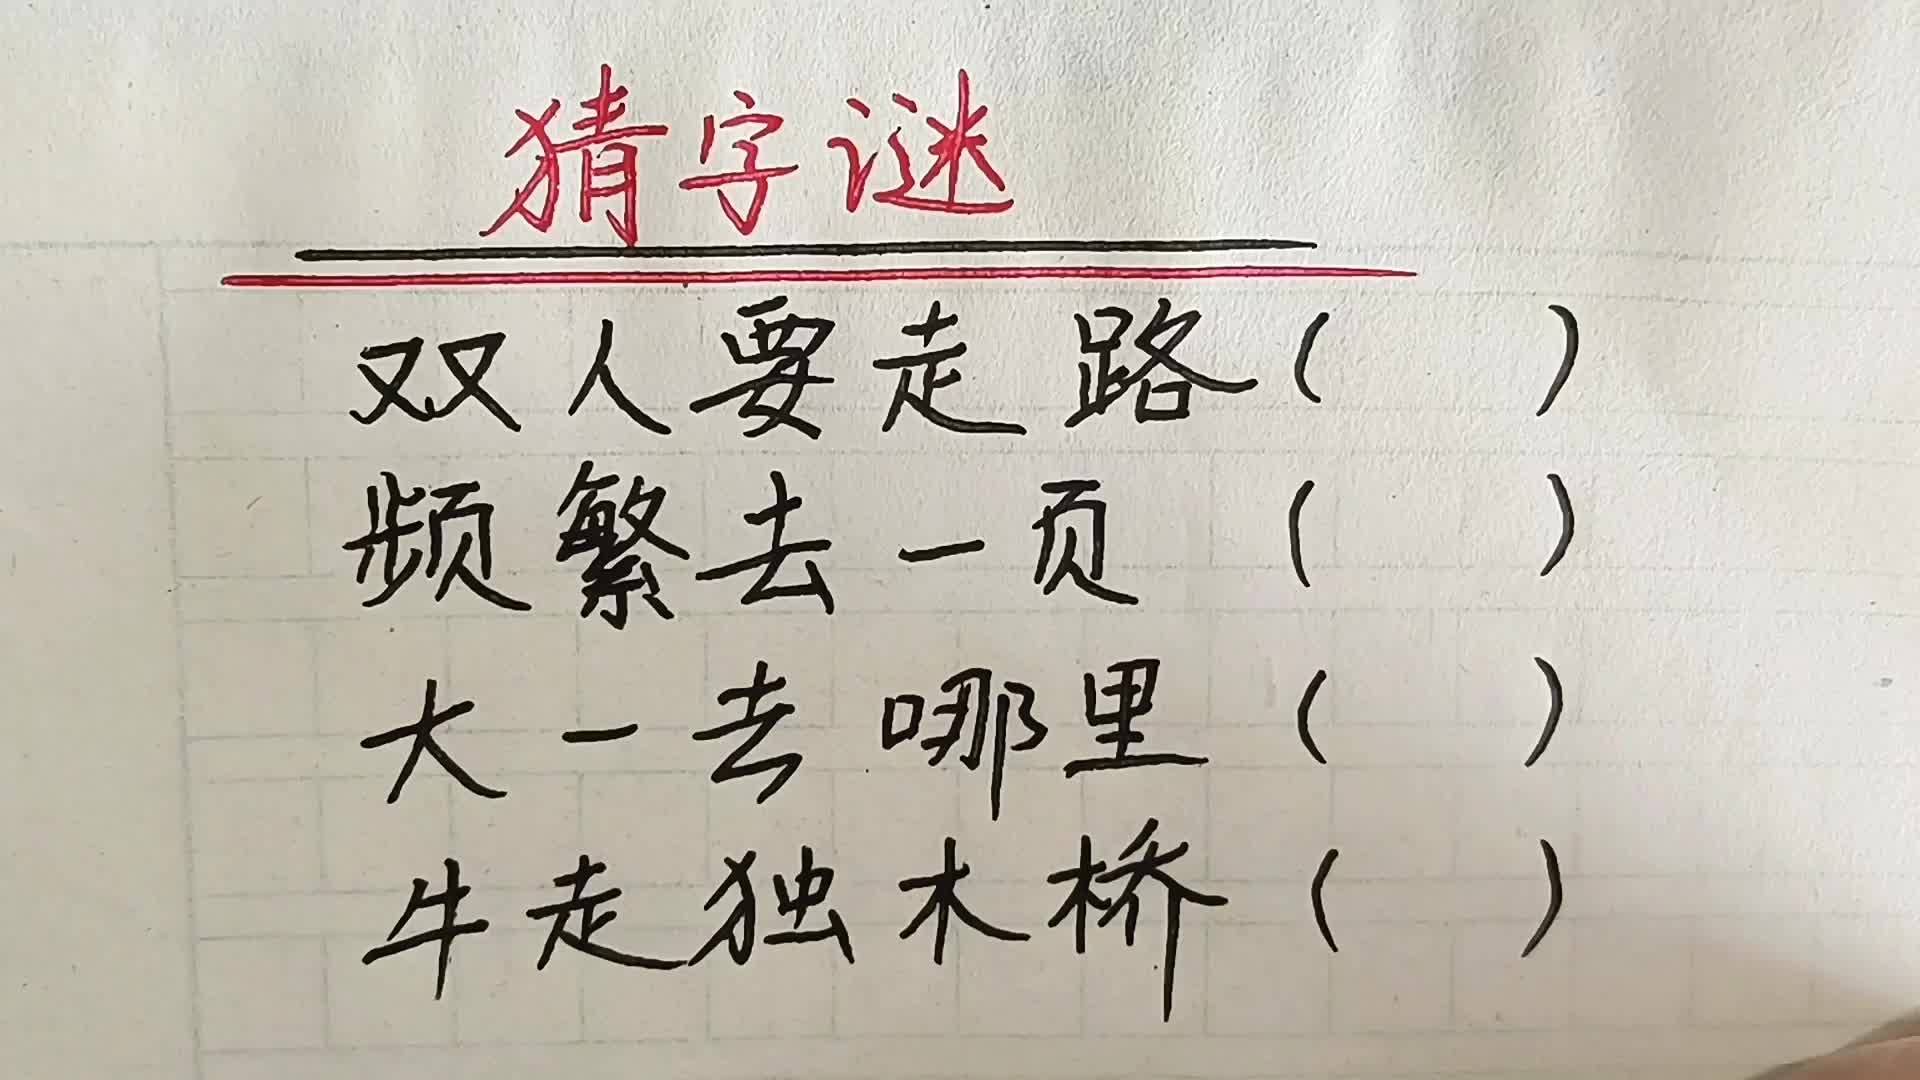 猜字谜
双人要走路( )
频繁去一页( )
大一去哪里( )
牛走独木桥( )